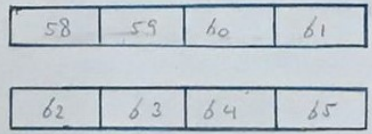 58 59 60 61
62 63 64 65